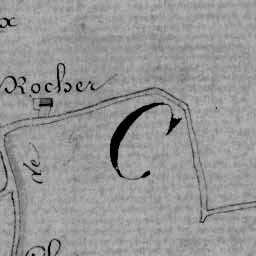 x
Rocher
C
de